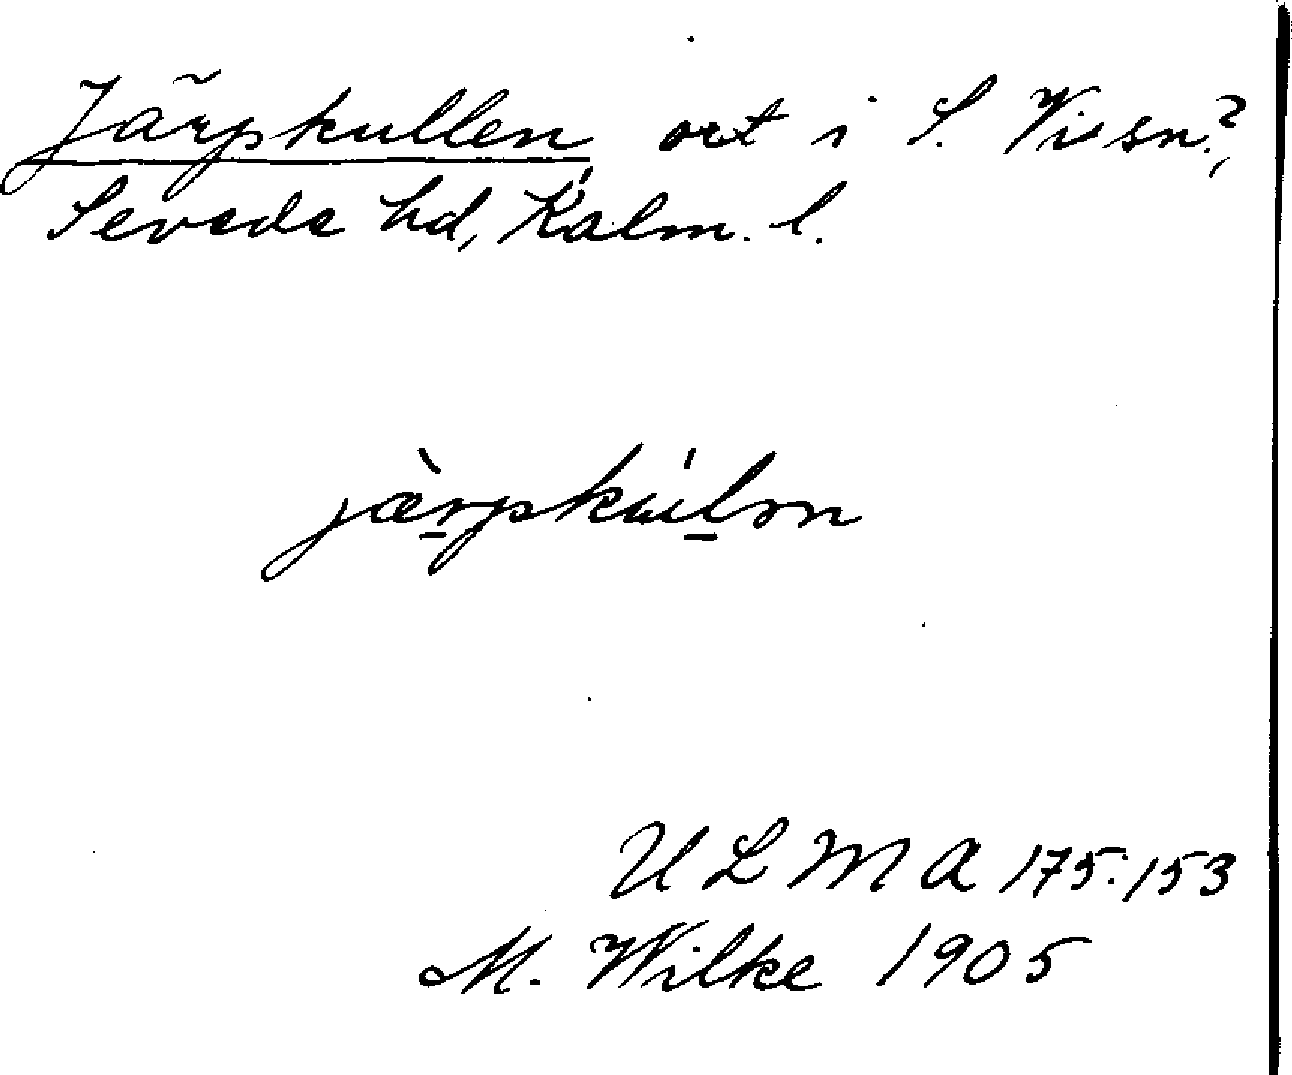 Järpkullen, ort i S. Vi sn?,
Sevede hd, Kalm. l.
jæ̀rpkúlən
ULMA 175:153
M. Wilke 1905